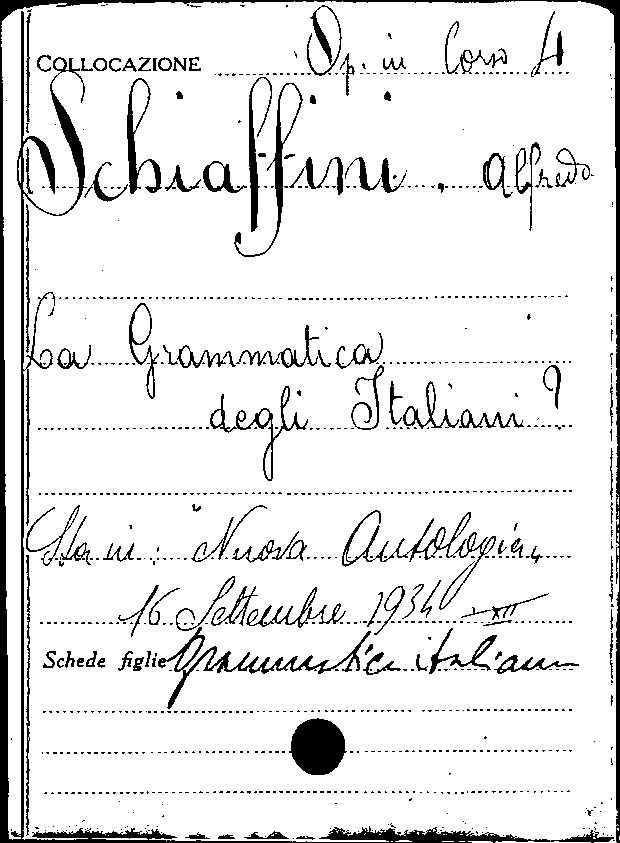 COLLOCAZIONE Op. in Corso 4
Schiaffini. Alfredo
La Grammatica
degli Italiani?
Sta in: "Nuova Antologia„
16 Settembre 1934 - XII
Schede figlie Grammatica italiana